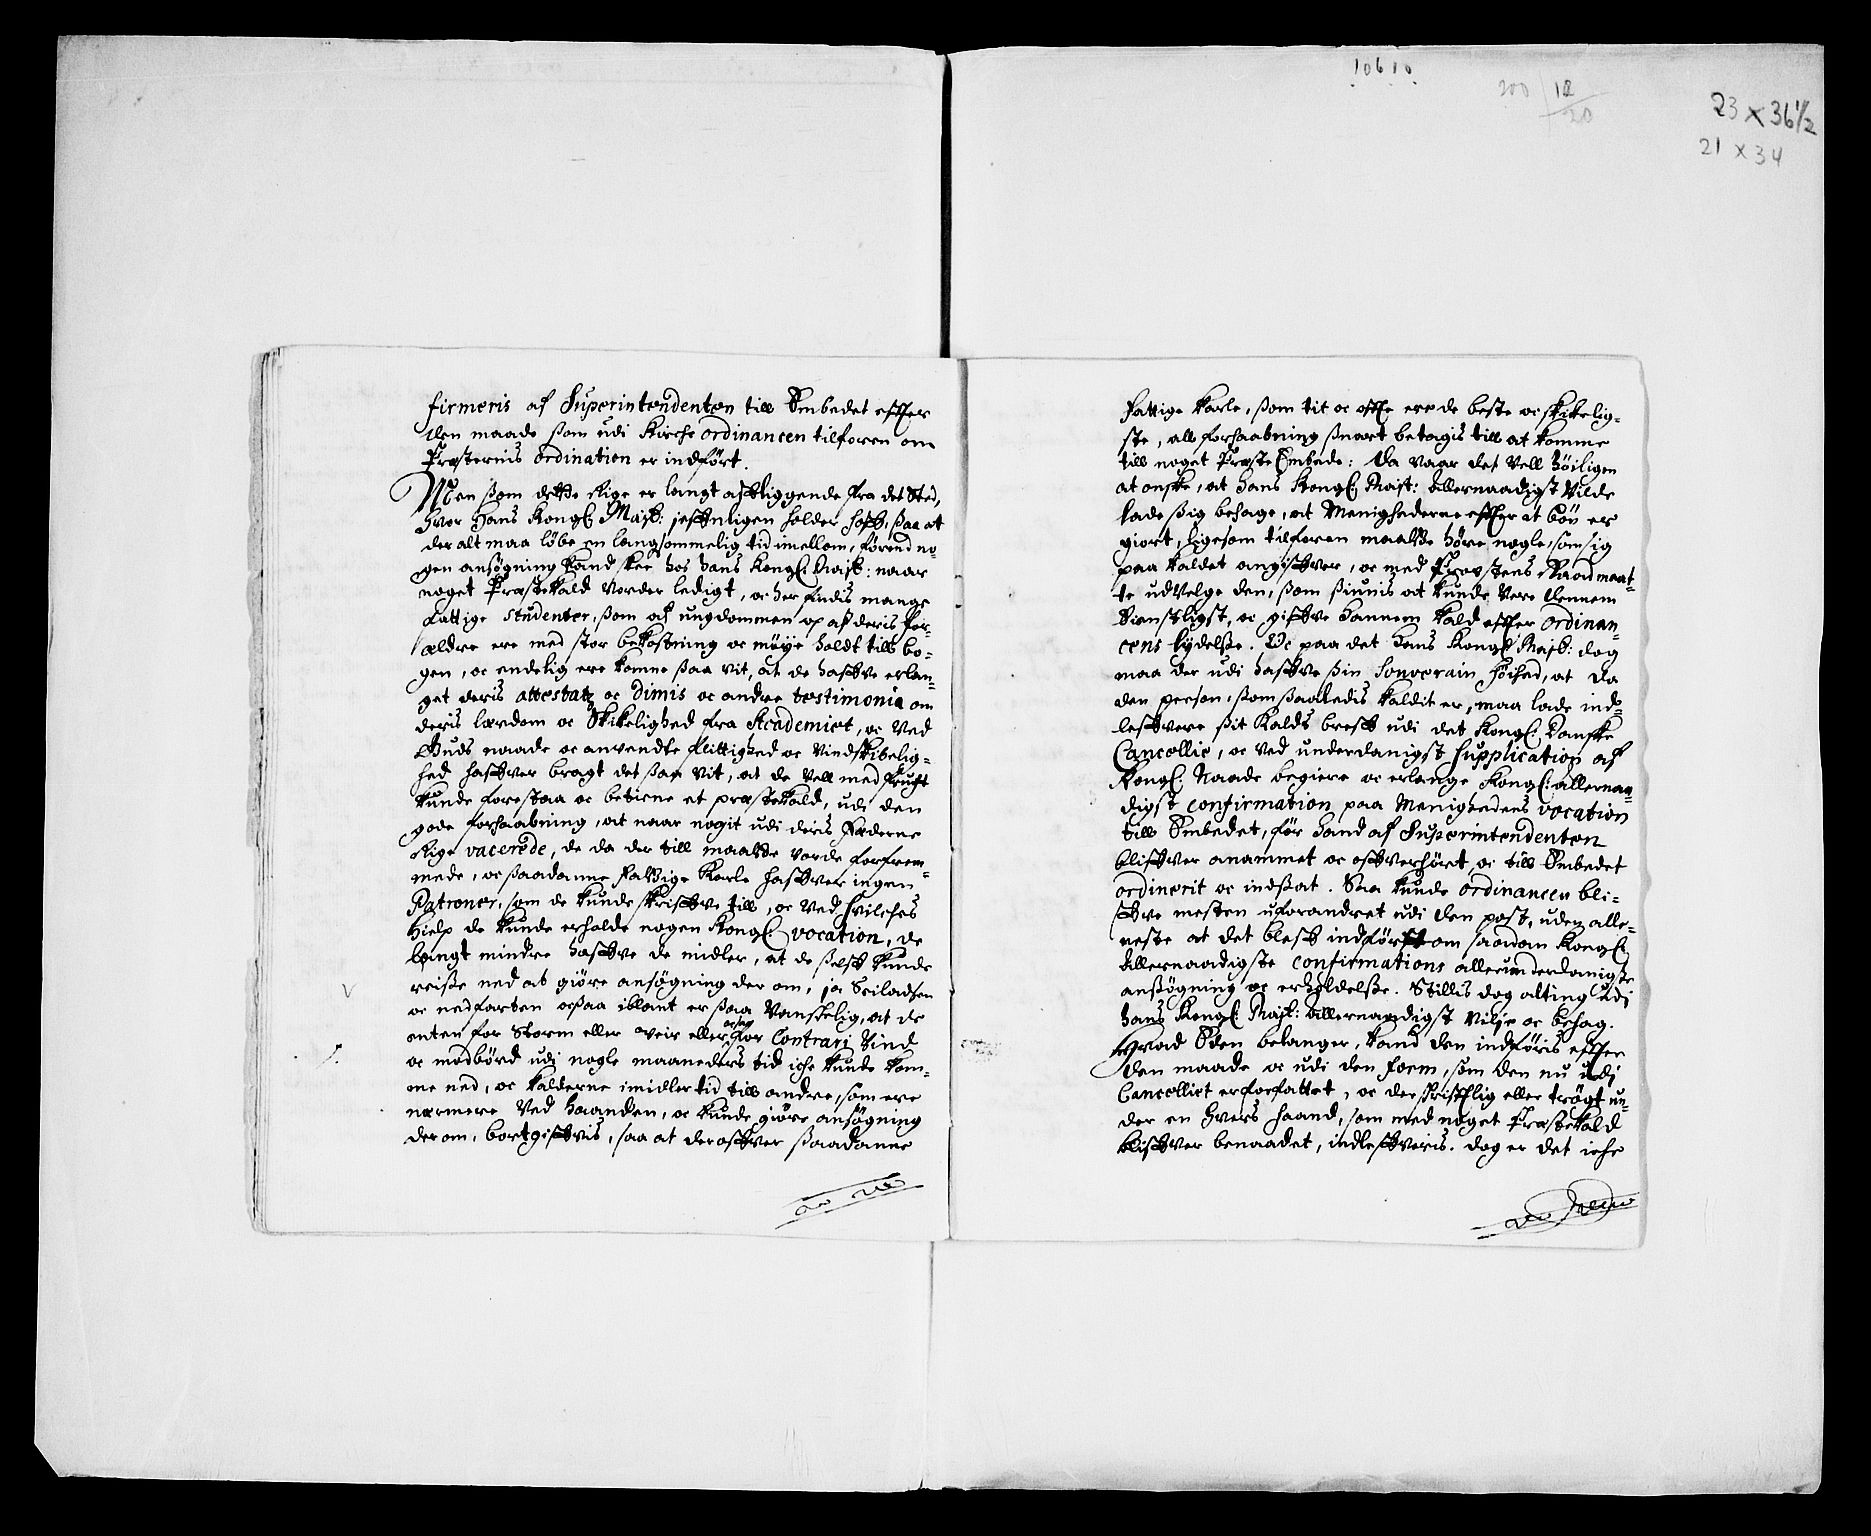 10610
200 | 12
20
23 x 36 1/2
21 x 34
firmeris af Superintendenten till Embedet effter
den maade som udi Kirche ordinancen tilforen om
Præsternis ordination er indført.
Men som dette Rige er langt afliggende fra det Sted,
hvor Hans Kongl: Majst: jefnligen holder hoff, saa at
der alt maa løbe en langsommelig tid imellom, førend no-
gen ansøgning kand skee hos Hans Kongl: Majst: naar
noget Præstekald vorder ledigt, oc her findis mange
fattige Studenter, som af ungdommen op af deris for-
ældre ere med stor bekostning oc møye holdt till bo-
gen, oc endelig ere komne saa vit, at de haffve erlan-
get deris attestatz oc Dimis oc andre testimonia om
deris lærdom oc Skikelighed fra Academiet, oc ved
Guds naade oc anvendte flittighed oc vindskibelig-
hed haffver bragt det saa vit, at de vell med frugt
kunde forestaa oc betiene et præstekald, udi den
gode forhaabning, at naar nogit udi deris Fæderne
Rige vacerede, de da der till maatte vorde forfrem-
mede, oc saadanne fattige Karle haffver ingen
Patroner, som de kunde skriffve till, oc ved hvilches
hielp de kunde erholde nogen Kongl: vocation, de
langt mindre haffve de midler, at de self kunde
reise ned at giøre ansøgning der om, ja Seiladsen
oc nedfarten ocsaa iblant er saa vanskelig, at de
enten for Storm eller veir eller ocsaa for Contrari Vind
oc modbørd udi nogle maaneders tid iche kunde kom-
me ned, oc kalderne imidlertid till andre, som ere
nærmere ved haanden, oc kunde giøre ansøgning
der om, bortgiffvis, saa at der offver saadanne
fattige Karle, som tit oc offte ere de beste oc skikelig-
ste, all forhaabning snart betagis till at komme
till noget Præste Embede: Da vaar det vell høiligen
at onske, at Hans Kongl: Majst: allernaadigst vilde
lade sig behage, at Menighederne effter at bøn er
giort, ligesom tilforen maatte høre nogle, som sig
paa kaldet angiffver, oc med Provstens Raad maat-
te udvelge den, som siunis at kunde vere dennem
tienstligst, oc giffve hannem Kald effter ordinan-
cens lydelse. Oc paa det Hans Kongl: Majst: dog
maa der udi haffve sin Souverain høihed, at da
den person, som saaledis kaldit er, maa lade ind-
leffvere sit Kalds breff udi det Kongl: Danske
Cancellie, oc ved underdanigst Supplication af
Kongl: Naade begiere oc erlange Kongl: allernaa-
digst confirmation paa Menighedens vocation
till Embedet, før hand af Superintendenten
bliffver anammet oc offverhøret oc till Embedet
ordinerit oc indsat. Saa kunde ordinancen bli-
ffve mesten uforandret udi den post, uden alle-
neste at det bleff indført om saadan Kongl:
Allernaadigste confirmations allerunderdanigste
ansøgning oc erholdelse. Stillis dog alting udi
Hans Kongl: Majst: Allernaadigst vilje oc behag.
Hvad Eden belanger, kand den indføris effter
den maade oc udi den Form, som den nu udi
Cancelliet er forfattet, oc der skrifflig eller trøgt un-
der en hvers haand, som med noget Præstekald
bliffver benaadet, indleffveris. dog er det iche